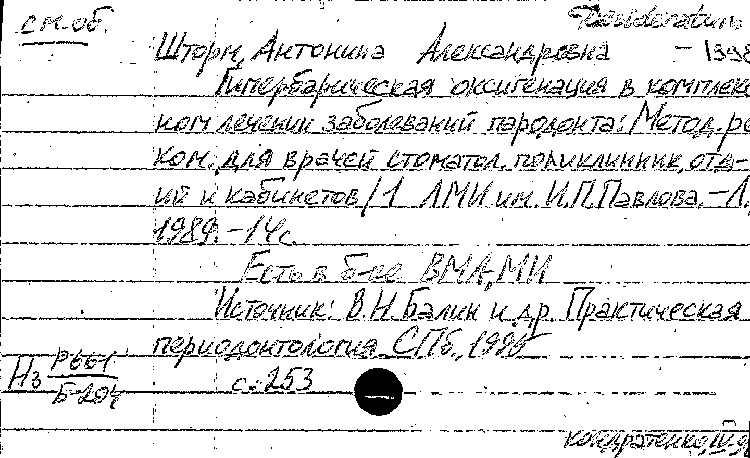 см.об. Desideratum
Шторм, Антонина Александровна – 1998
Гипербарическая оксигенация в комплекс
ном лечении заболеваний пародонта: Метод. ре
ком. для врачей стоматол. поликлинник, отд-
ий и кабинетов / 1 ЛМИ им. И.П.Павлова. – Л.
1989. – 14с.
Есть в б-ке ВМА, МИ
Источник: В.Н.Балин и др. Практическая
периодонтология СПб.,
Нз Р661 с. 253
Б-204
Кондратенко, IV.9